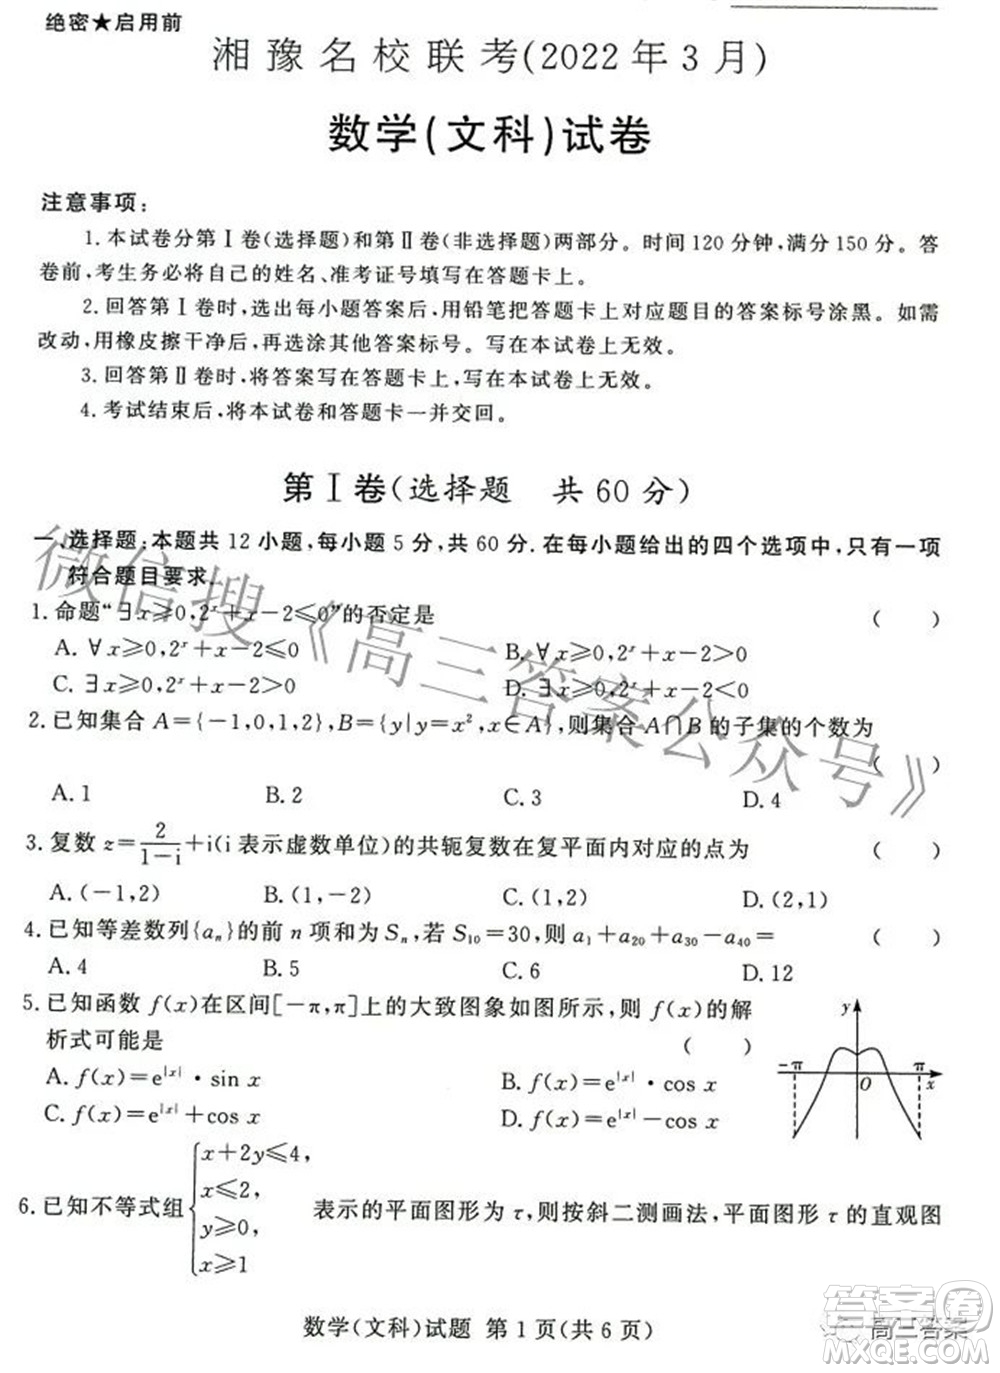 绝密★启用前
湘豫名校联考(2022年3月)
数学(文科)试卷
注意事项:
1.本试卷分第Ⅰ卷(选择题)和第Ⅱ卷(非选择题)两部分。时间120分钟,满分150分。答
卷前,考生务必将自己的姓名、准考证号填写在答题卡上。
2.回答第Ⅰ卷时,选出每小题答案后,用铅笔把答题卡上对应题目的答案标号涂黑。如需
改动,用橡皮擦干净后,再选涂其他答案标号。写在本试卷上无效。
3.回答第Ⅱ卷时,将答案写在答题卡上,写在本试卷上无效。
4.考试结束后,将本试卷和答题卡一并交回。
第Ⅰ卷(选择题 共60分)
一、选择题:本题共12小题,每小题5分,共60分.在每小题给出的四个选项中,只有一项
符合题目要求.
1.命题“∃x≥0,2ˣ+x-2≤0”的否定是 ( )
A.∀x≥0,2ˣ+x-2≤0 B.∀x≥0,2ˣ+x-2>0
C.∃x≥0,2ˣ+x-2>0 D.∃x≤0,2ˣ+x-2>0
2.已知集合A={-1,0,1,2},B={y|y=x²,x∈A},则集合A∩B的子集的个数为
( )
A.1 B.2 C.3 D.4
3.复数z=2/(1-i)+i(i表示虚数单位)的共轭复数在复平面内对应的点为 ( )
A.(-1,2) B.(1,-2) C.(1,2) D.(2,1)
4.已知等差数列{aₙ}的前n项和为Sₙ,若S₁₀=30,则a₁+a₂₀+a₃₀-a₄₀= ( )
A.4 B.5 C.6 D.12
5.已知函数f(x)在区间[-π,π]上的大致图象如图所示,则f(x)的解
析式可能是 ( )
A.f(x)=e^|x|·sin x B.f(x)=e^|x|·cos x
C.f(x)=e^|x|+cos x D.f(x)=e^|x|-cos x
y
-π O π x
6.已知不等式组{x+2y≤4,
x≤2,
y≥0,
x≥1
表示的平面图形为τ,则按斜二测画法,平面图形τ的直观图
数学(文科)试题 第1页(共6页)
微信搜《高三答案公众号》
高三答案
答案圈
MXQE.COM